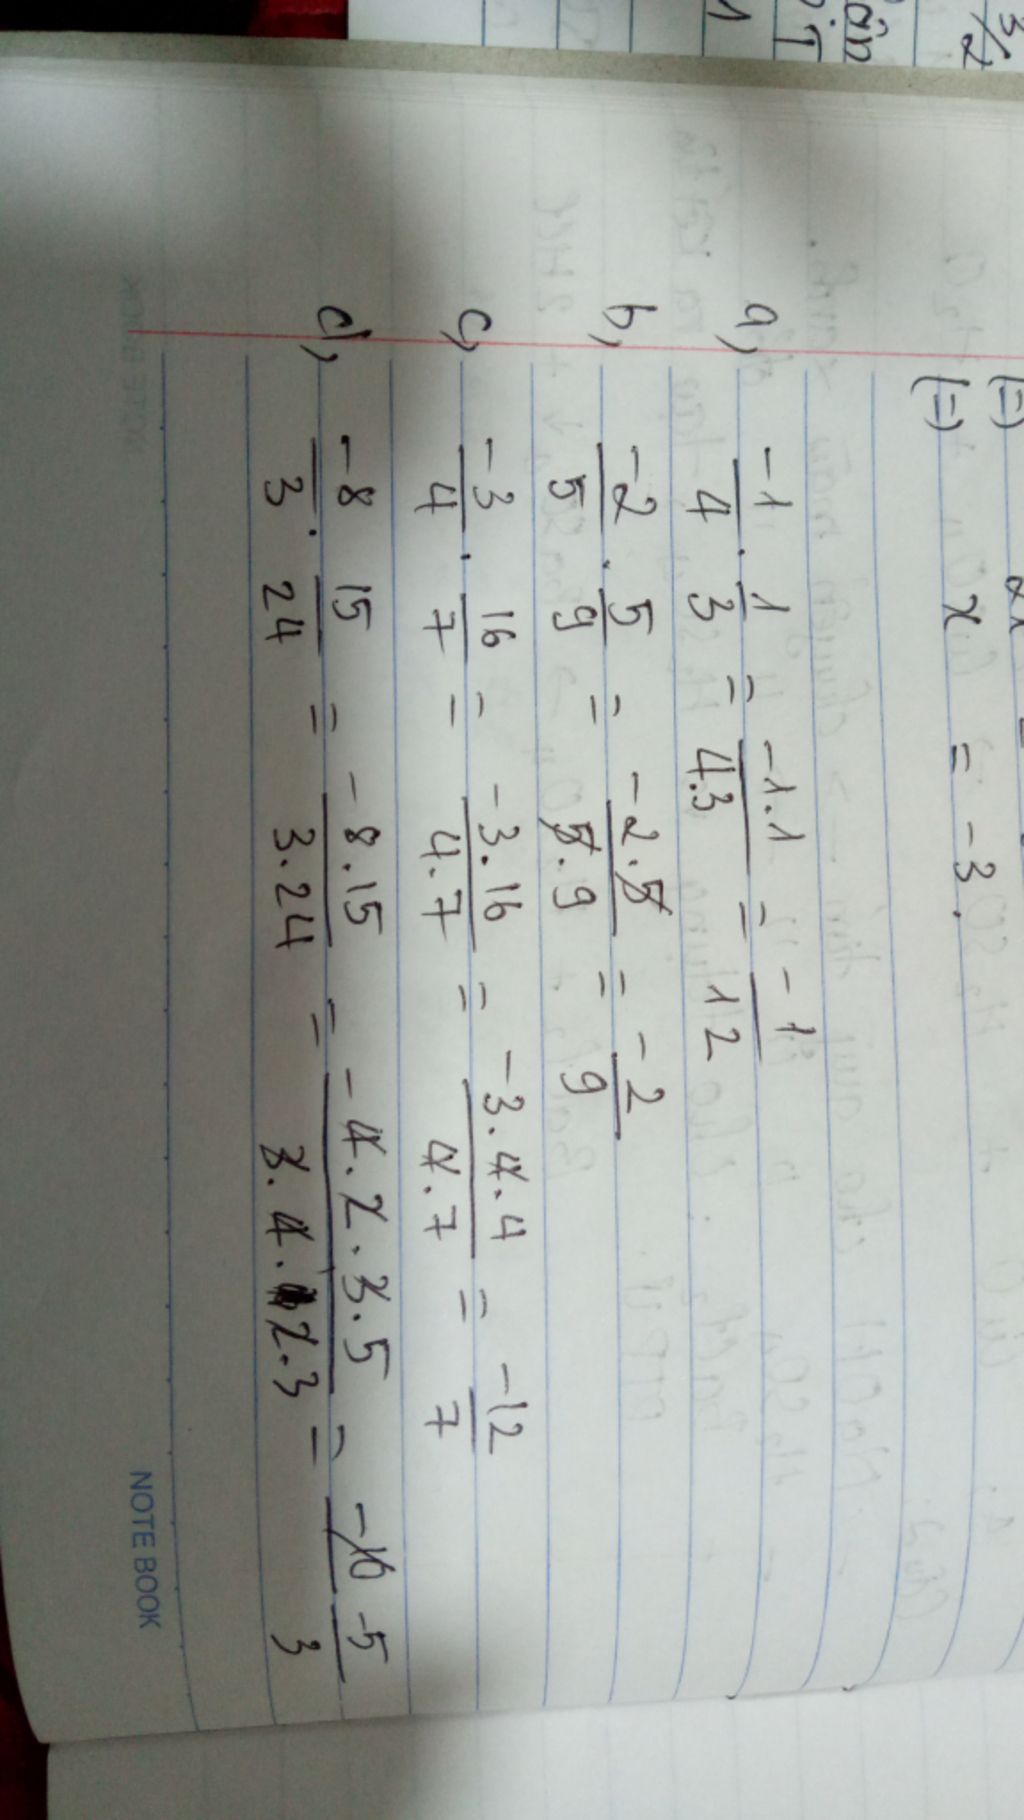 (=) x = -3.
a, -1/4 . 1/3 = -1.1/4.3 = -1/12
b, -2/5 . 5/9 = -2.5/5.9 = -2/9
c, -3/4 . 16/7 = -3.16/4.7 = -3.4.4/4.7 = -12/7
d, -8/3 . 15/24 = -8.15/3.24 = -4.2.3.5/3.4.2.3 = -5/3
NOTE BOOK